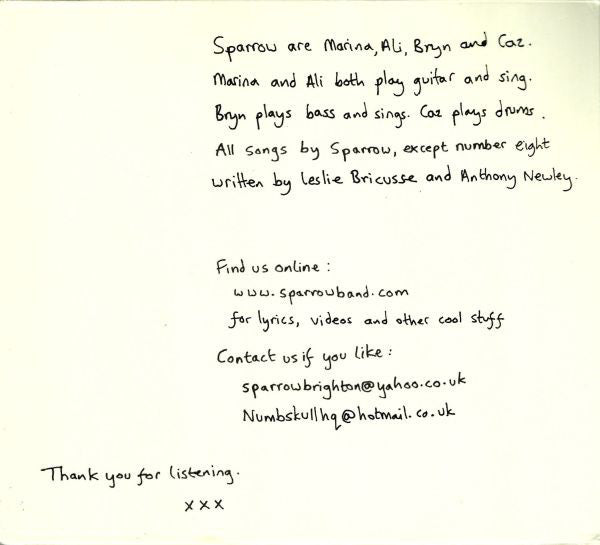 Sparrow are Marina, Ali, Bryn and Caz.
Marina and Ali both play guitar and sing.
Bryn plays bass and sings. Caz plays drums.
All songs by Sparrow, except number eight
written by Leslie Bricusse and Anthony Newley.
Find us online:
www.sparrowband.com
for lyrics, videos and other cool stuff
Contact us if you like:
sparrowbrighton@yahoo.co.uk
Numbskullhq@hotmail.co.uk
Thank you for listening.
xxx